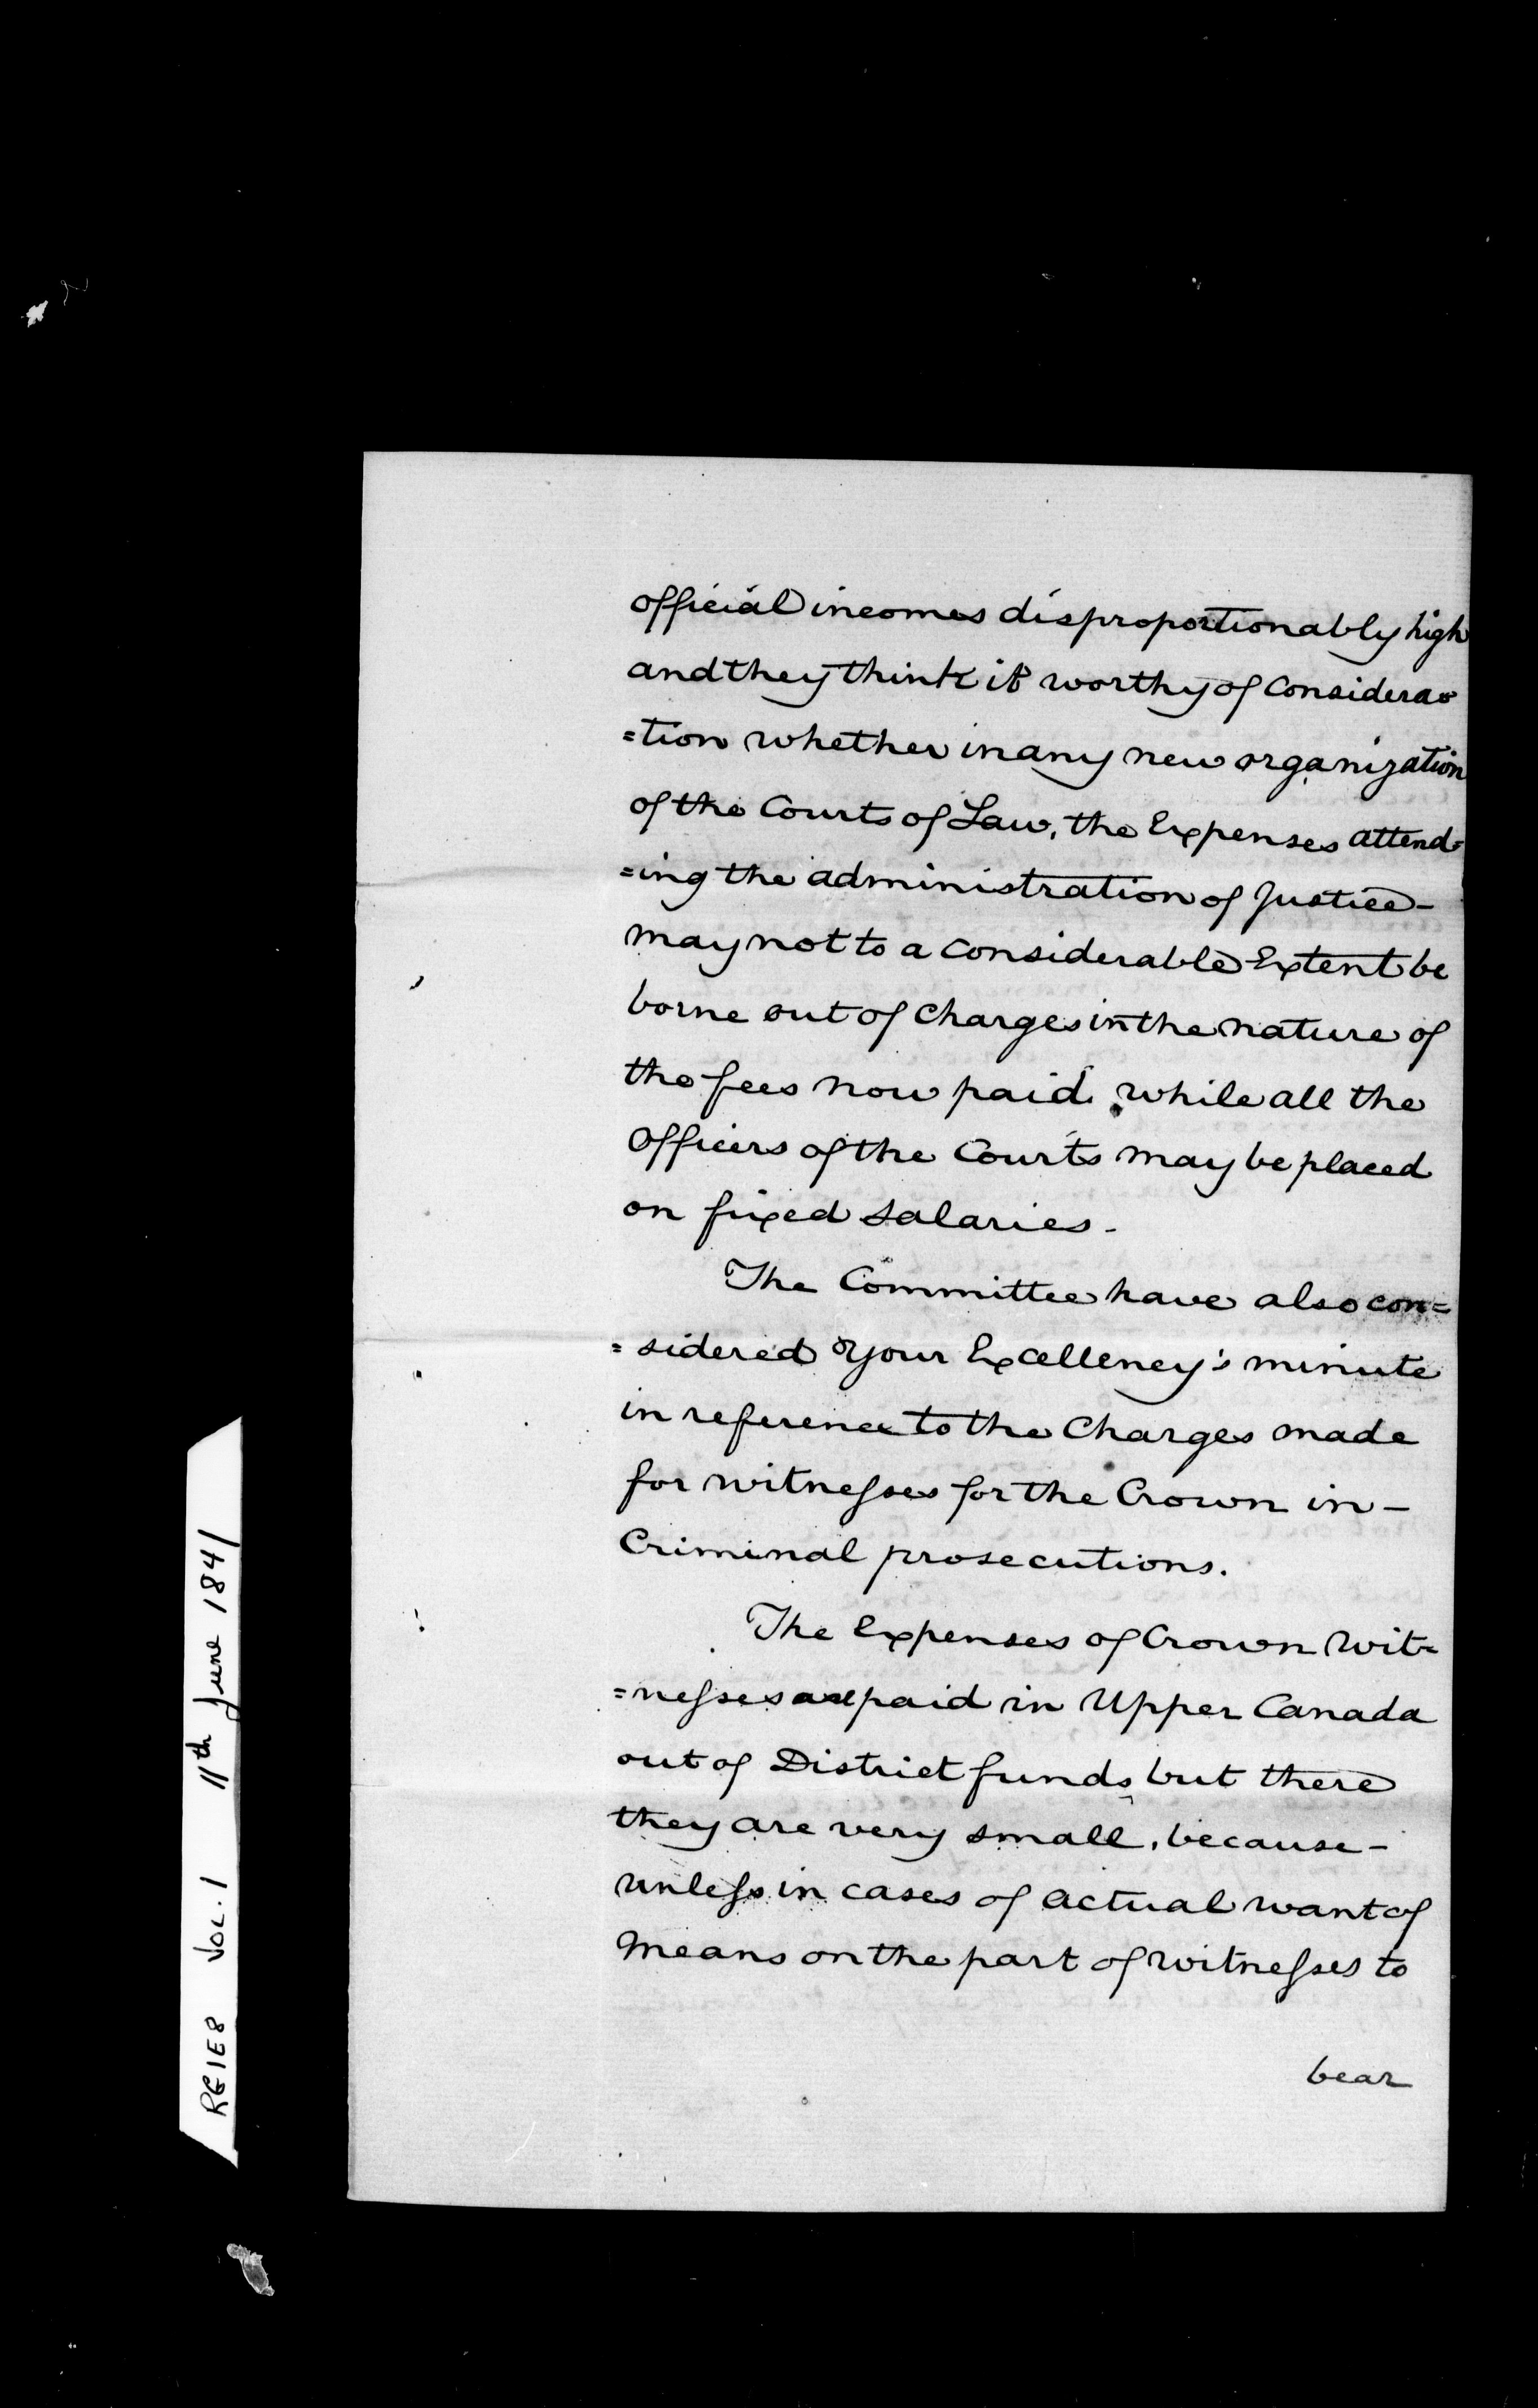 official incomes disproportionably high
and they think it worthy of Considera=
=tion whether in any new organization
of the Courts of Law, the Expenses attend=
=ing the administration of Justice -
may not to a considerable Extent be
borne out of Charges in the nature of
the fees now paid, while all the
Officers of the Courts may be placed
on fixed salaries -
The Committee have also con=
=sidered Your Excellency's minute
in reference to the Charges made
for witnesses for the Crown in -
Criminal prosecutions.
The Expenses of Crown Wit=
=nesses are paid in Upper Canada
out of District funds, but there
they are very small, because -
unless in cases of actual want of
means on the part of witnesses to
bear
RG1E8 VOL. 1 11th June 1841